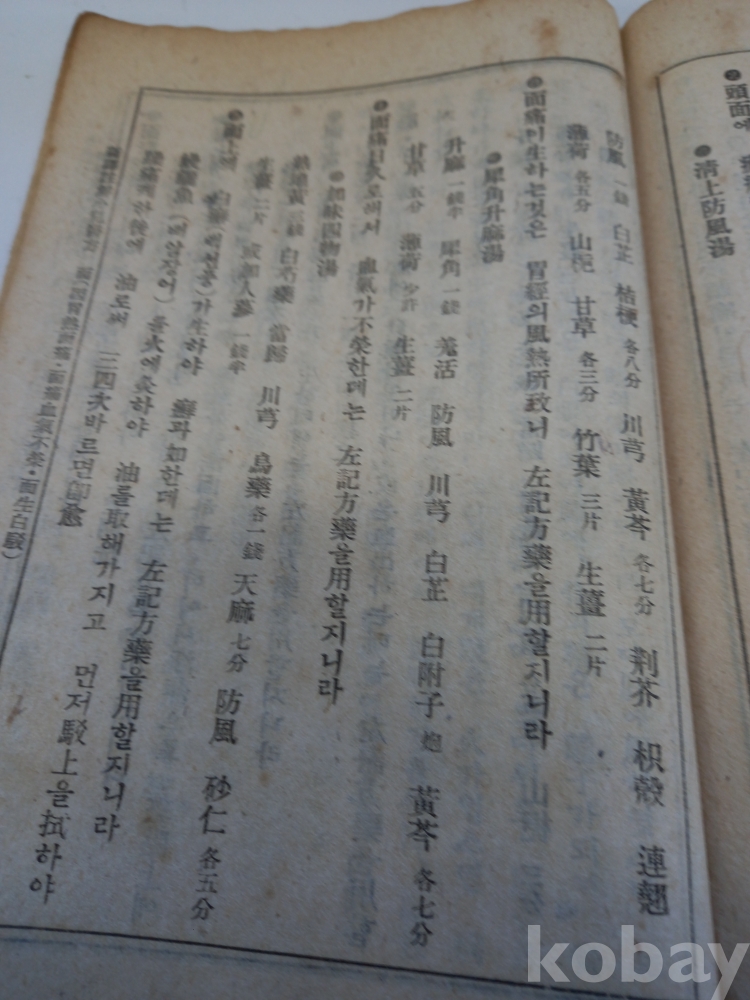 頭面에
淸上防風湯
防風 一錢 白芷 桔梗 各八分 川芎 黃芩 各七分 荆芥 枳殼 連翹
薄荷 各五分 山梔 甘草 各三分 竹葉 三片 生薑 二片
面痛이生하는것은 胃經의風熱所致니 左記方藥을用할지니라
犀角升麻湯
升麻 一錢半 犀角 一錢 羗活 防風 川芎 白芷 白附子 炮 黃芩 各七分
甘草 五分 薄荷 少許 生薑 二片
面痛日久로해서 血氣가不榮한데는 左記方藥을用할지니라
加味四物湯
熟地黃 三錢 白芍藥 當歸 川芎 烏藥 各一錢 天麻 七分 防風 砂仁 各五分
生薑 三片 或加人蔘 一錢半
面上에 가生하야 癬과如한데는 左記方藥을用할지니라
鰻鱺魚(배암장어)를火에炙하야 油를取해가지고 먼저駁上을拭하야
한後에 油로써 三四次바르면卽愈
面(因胃熱面痛・面痛血氣不榮・面生白駁)
kobay